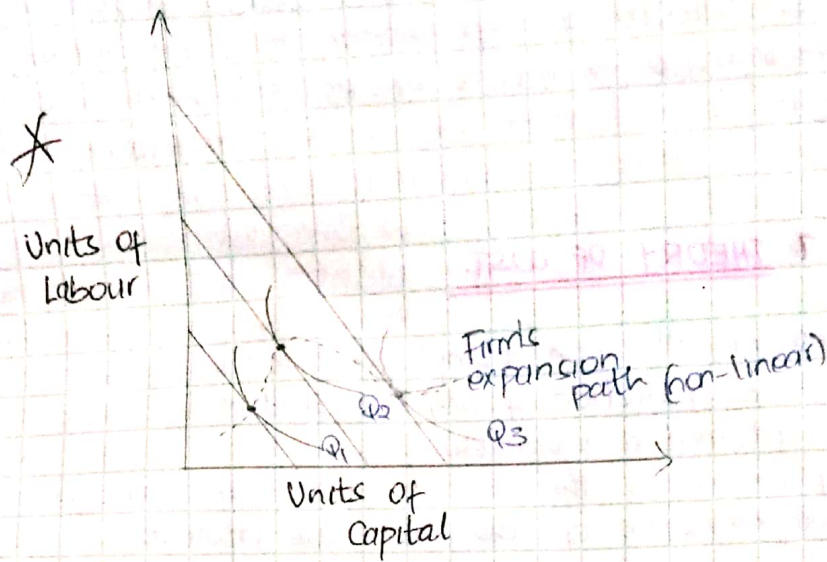 Units of
Labour
Firm's
expansion
path (non-linear)
Q2
Q3
Q1
Units of
Capital